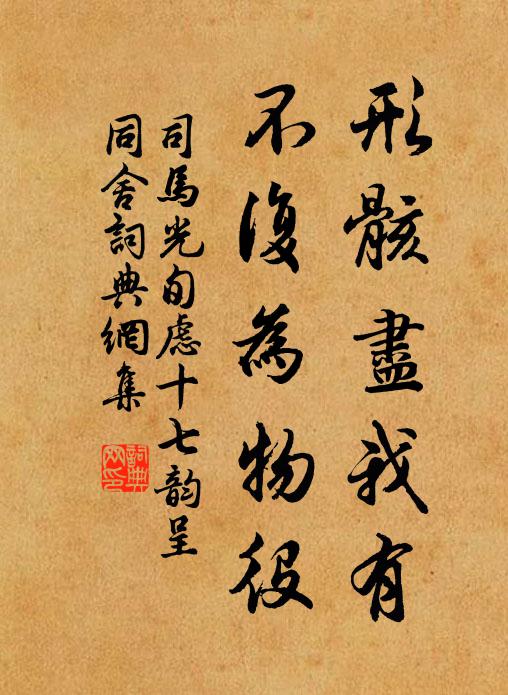 形骸盡我有
不復為物役
司馬光旬慮十七韵呈
同舍詞典網集
詞典网印